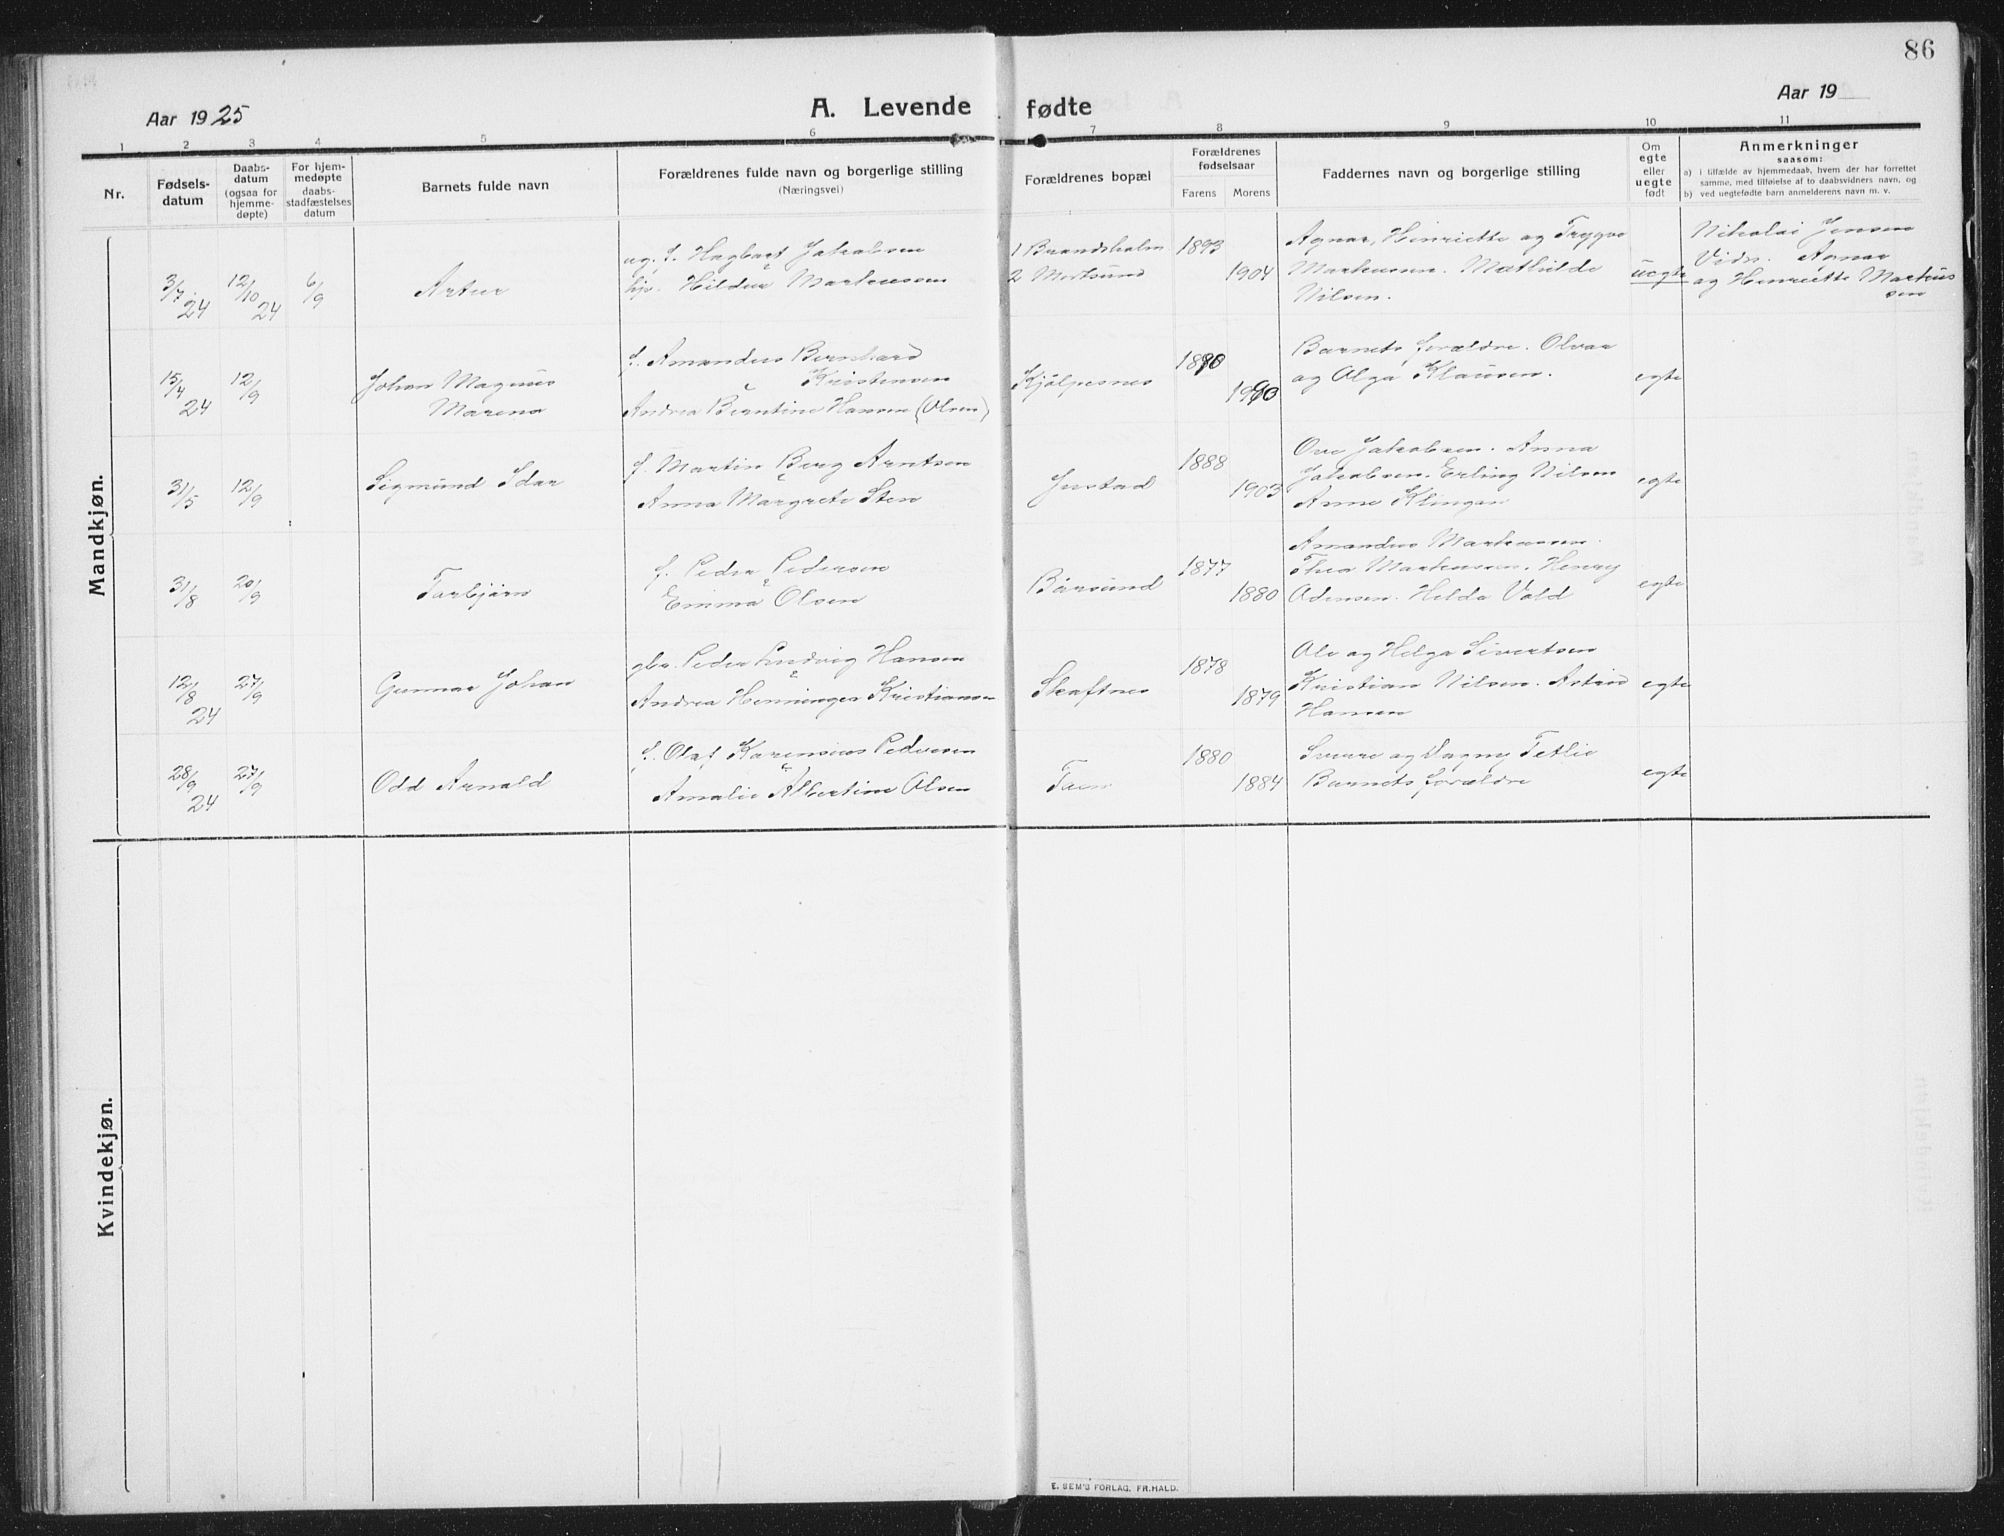 86
Aar 1925
A. Levende fødte
Aar 19
1 2 3 4 5 6 7 8 9 10 11
Nr.
Fødsels-
datum
Daabs-
datum
(ogsaa for
hjemme-
døpte)
For hjem-
medøpte
daabs-
stadfæstelses
datum
Barnets fulde navn
Forældrenes fulde navn og borgerlige stilling
(Næringsvei)
Forældrenes bopæl
Forældrenes
fødselsaar
Farens Morens
Faddernes navn og borgerlige stilling
Om
egte
eller
uegte
født
Anmerkninger
saasom:
a) i tilfælde av hjemmedaab, hvem der har forrettet
samme, med tilføielse af to daabsvidners navn, og
b) ved uegtefødte barn anmelderens navn m. v.
Mandkjøn.
3/7 24
12/10 24
6/9
Artur
ug. f. Hagbart Jakobsen
hp. Hildur Markussen
1 Brandsholm
2 Mortsund
1893
1904
Agnar, Henriette og Trygve
Markussen. Mathilde
Nilsen.
uegte
Nikolai Jensen
Vidn. Agnar
og Henriette Markus
sen
15/4 24
12/9
Johan Magnus
Marenus
f. Amandus Bernhard
Kristensen
Andrea Berntine Hansen (Olsen)
Kjølpesnes
Barnets forældre. Olvar
og Olga Klausen.
egte
31/5
12/9
Sigmund Idar
f. Martin Berg Arntsen
Anna Margrete Sten
Justad
1888
1903
Ove Jakobsen. Anna
Jakobsen. Erling Nilsen
Anne Klingan
egte
31/8
20/9
Torbjørn
f. Peder Pedersen
Emma Olsen
Bårsund
1877
1880
Amandus Markussen.
Thea Markussen. Henry
Adensen. Hilda Vold
egte
12/8 24
27/9
Gunnar Johan
gbr. Peder Ludvig Hansen
Andrea Henninger Kristiansen
Skaftnes
1878
1879
Ole og Helga Sivertsen
Kristian Nilsen. Astrid
Hansen
egte
28/9 24
27/9
Odd Arnald
f. Olaf Karensius Pedersen
Amalie Albertine Olsen
Taen
1880
1884
Sverre og Dagny Tetlie
Barnets forældre
egte
Kvindekjøn.
E. SEM'S FORLAG, FR.HALD.